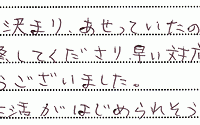 決まり、あせっていたの
してくださり、早い対応
うございました。
活がはじめられそう